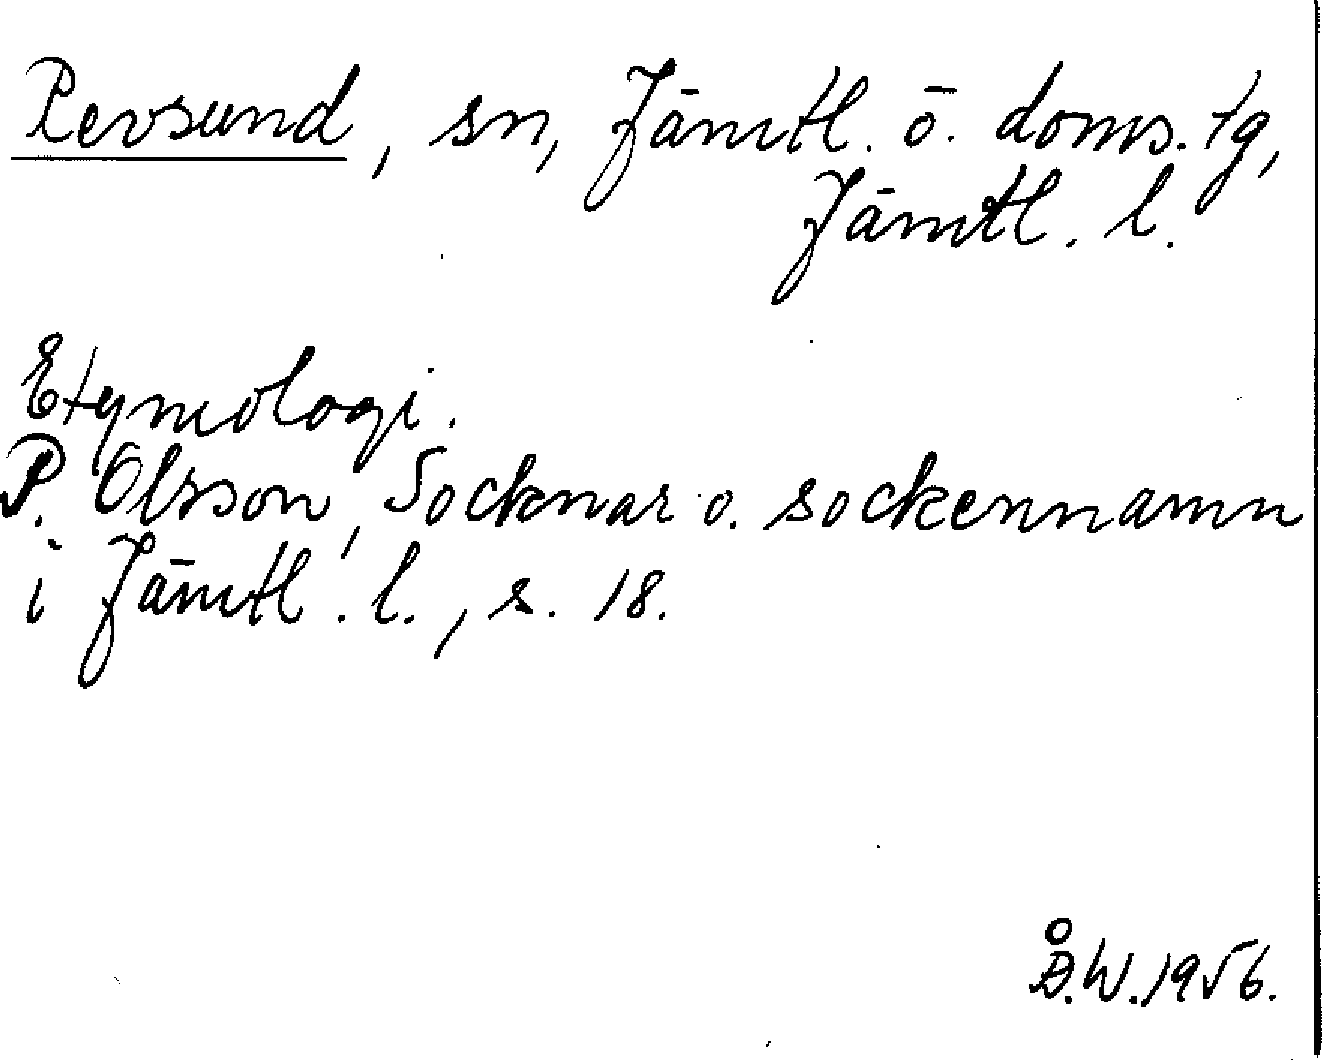 Revsund, sn, Jämtl. ö. doms. tg,
Jämtl. l.
Etymologi.
P. Olsson, Socknar o. sockennamn
i Jämtl. l., s. 18.
Å.W. 1956.